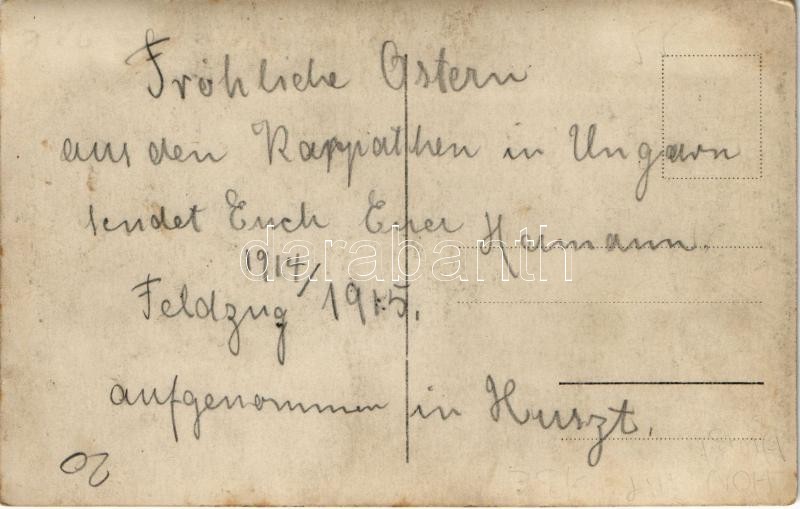 Fröhliche Ostern
aus den Karppathen in Ungarn
sendet Euch Euer Hermann.
1914/
Feldzug 1915.
aufgenommen in Huszt.
20
darabanth